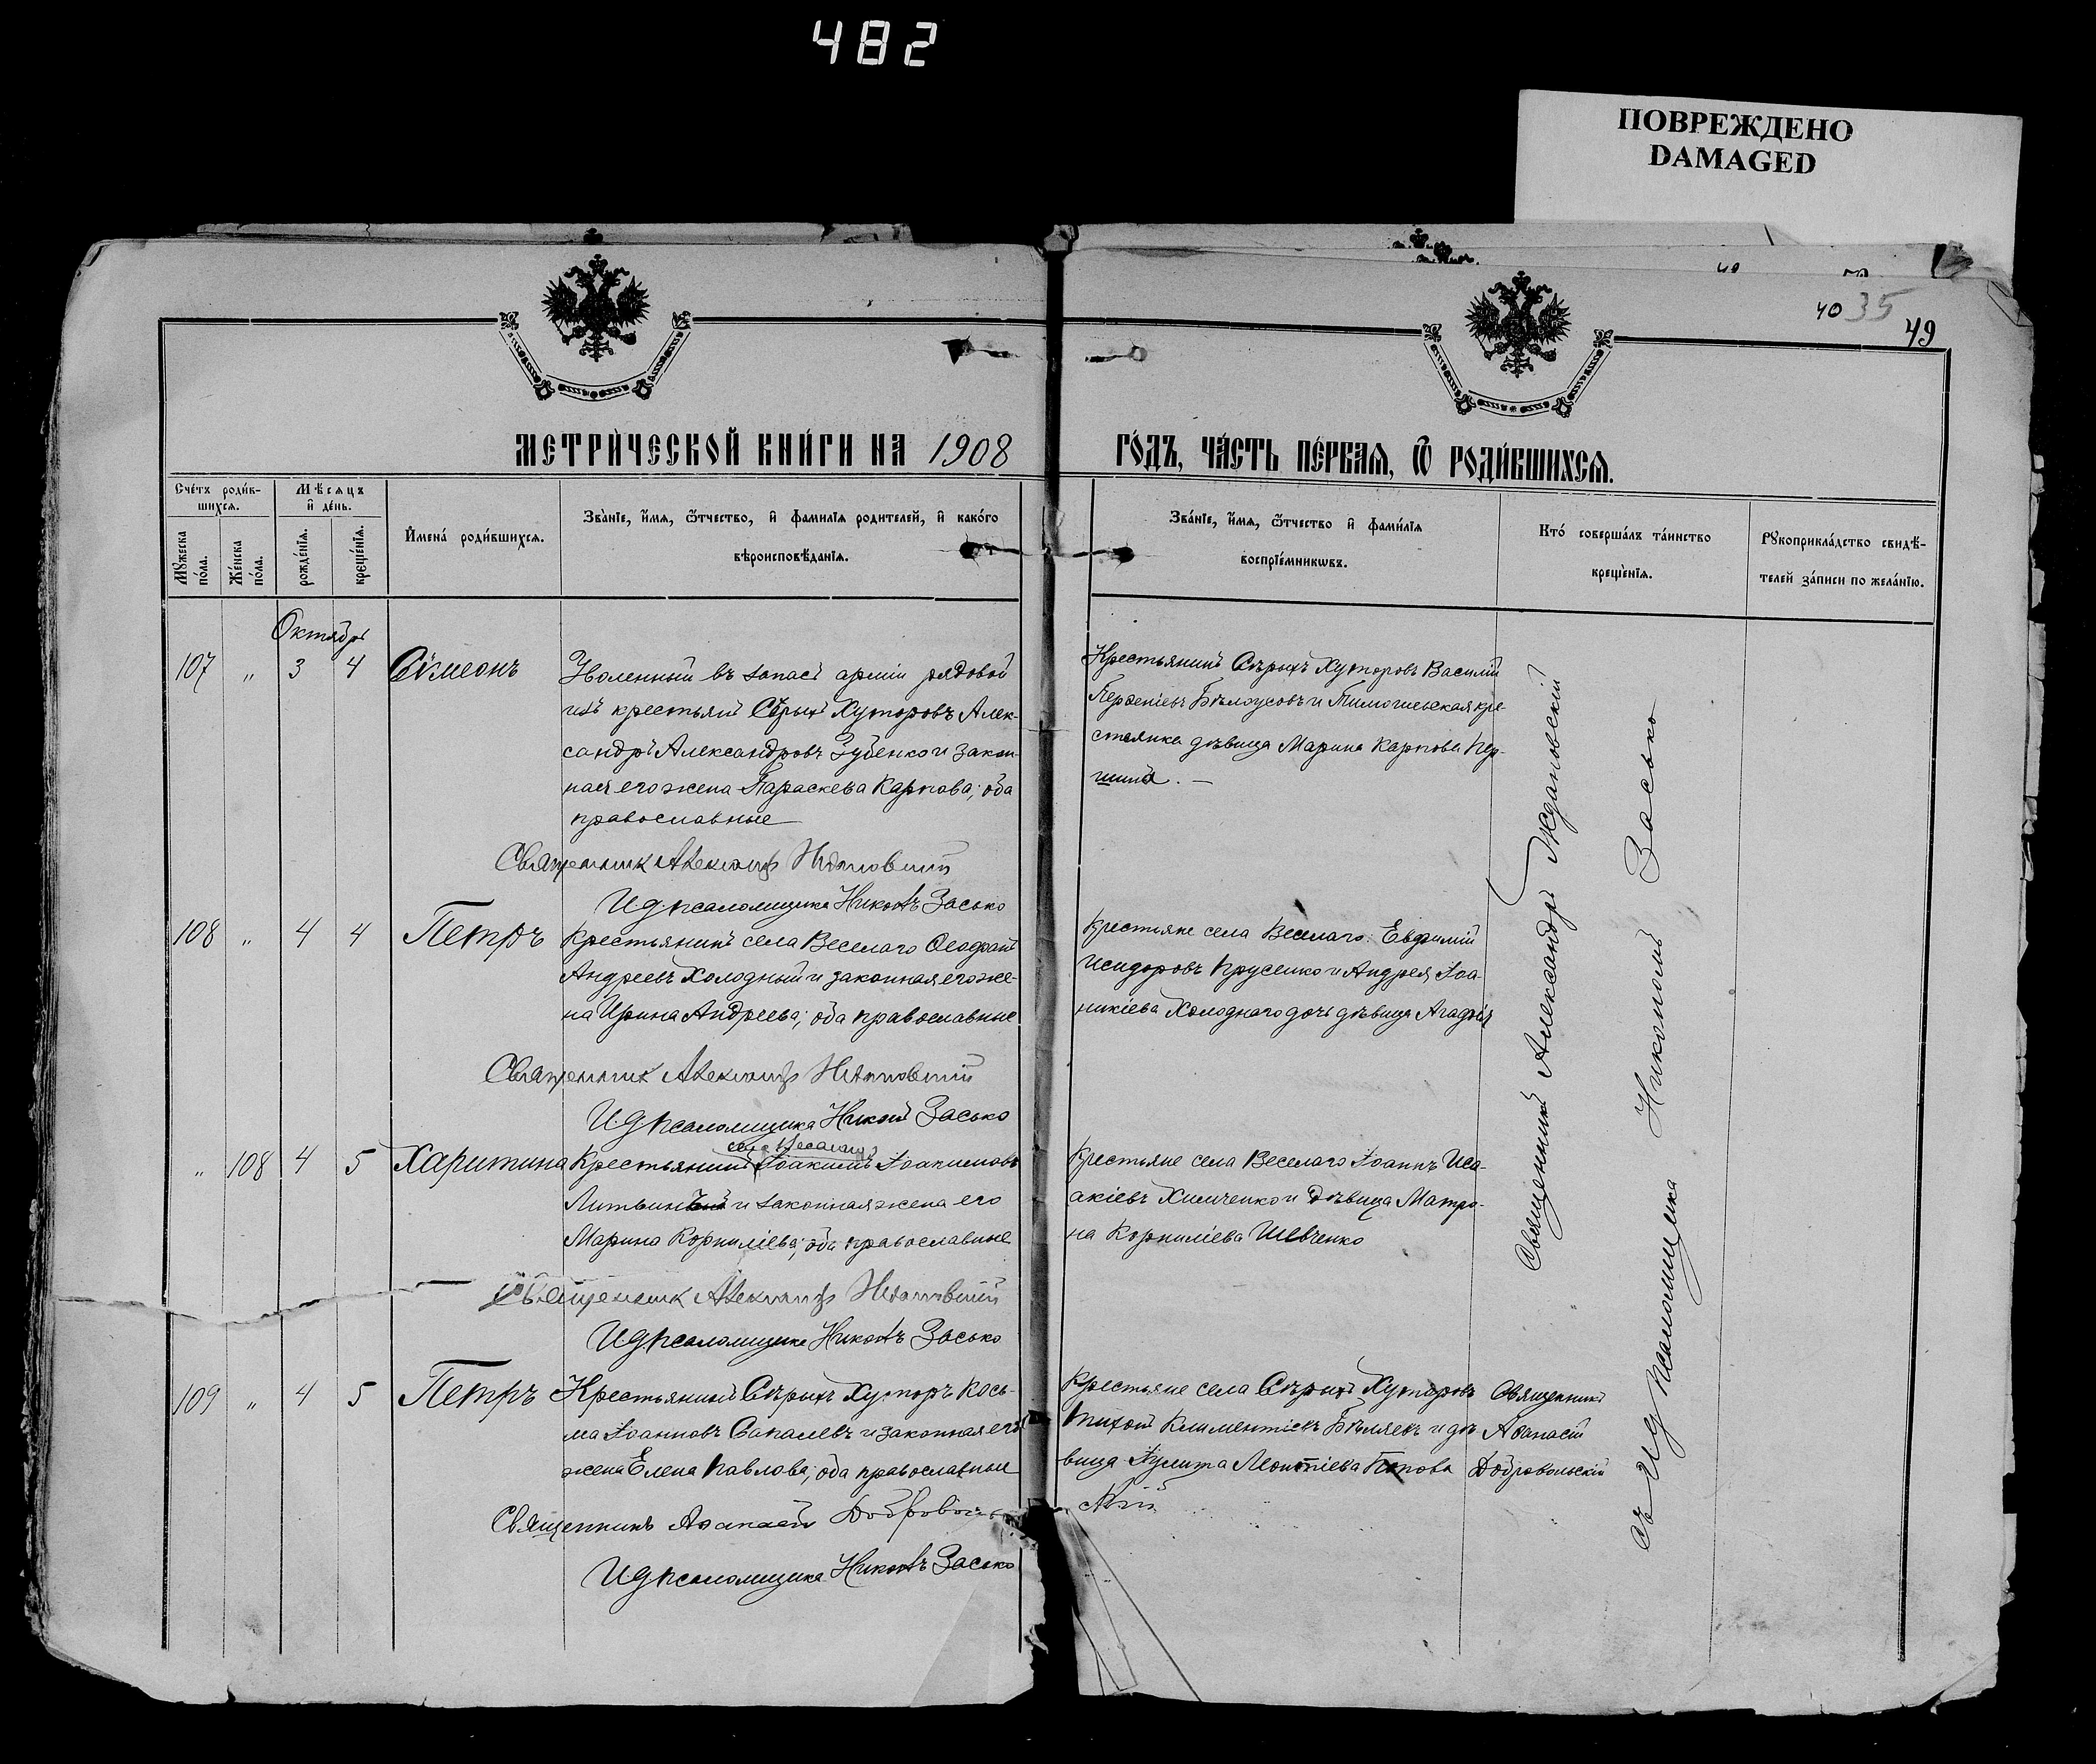 482
ПОВРЕЖДЕНО
DAMAGED
40 35
49
МЕТРИЧЕСКОЙ КНИГИ НА 1908
ГОДЪ, ЧАСТЬ ПЕРВАЯ, Ѿ РОДИВШИХСЯ.
Счетъ родив-
шихся.
Мѣсяцъ
и день.
Мужеска
пола.
Женска
пола.
рожденія.
крещенія.
Имена родившихся.
Званіе, имя, ѿтчество, и фамилія родителей, и какого
вѣроисповѣданія.
Званіе, имя, ѿтчество и фамилія
воспріемниковъ.
Кто совершалъ таинство
крещенія.
Рукоприкладство свидѣ-
телей записи по желанію.
Октябрь
107 " 3 4 Сѵмеонъ
въ запасъ арміи рядовой
изъ крестьян Сѣрыхъ Хуторовъ Алек-
сандръ Александровъ Зубенко и закон-
ная его жена Параскева Карпова; оба
православные
Крестьянинъ Сѣрыхъ Хуторовъ Василій
Бѣлоусовъ и кре-
стьянка дѣвица Марина Карпова
Священникъ Александръ Ждановскій
И.д. псаломщика Никонъ Засько
108 " 4 4 Петръ
Крестьянинъ села Веселаго
Андреевъ Холодный и законная его же-
на Ирина Андреева; оба православные
Крестьяне села Веселаго: Евфимій
Исидоровъ Прусенко и Андрея Іоа-
никіева Холоднаго дочь дѣвица Агафія
Священникъ Александръ Ждановскій
И.д. псаломщика Никонъ Засько
" 108 4 5 Харитина
села Веселаго
Крестьянинъ Іоакимъ Іоакимовъ
и законная жена его
Марина Корниліева; оба православные
Крестьяне села Веселаго Іоаннъ Иса-
акіевъ Химченко и дѣвица Матро-
на Корниліева Шевченко
Священникъ Александръ Ждановскій
И.д. псаломщика Никонъ Засько
109 " 4 5 Петръ
Крестьянинъ Сѣрыхъ Хуторъ Кось-
ма Іоанновъ и законная его
жена Елена Павлова; оба православные
Крестьяне села Сѣрыхъ Хуторовъ
Тихонъ Климентіевъ Бѣляевъ и дѣ-
вица Іулита Леонтіева Попова
Священникъ
Аѳанасій
Добровольскій
Священникъ Аѳанасій Добровольскій
И.д. псаломщика Никонъ Засько
Священникъ Александръ Ждановскій
съ И.д. псаломщика Никономъ Засько